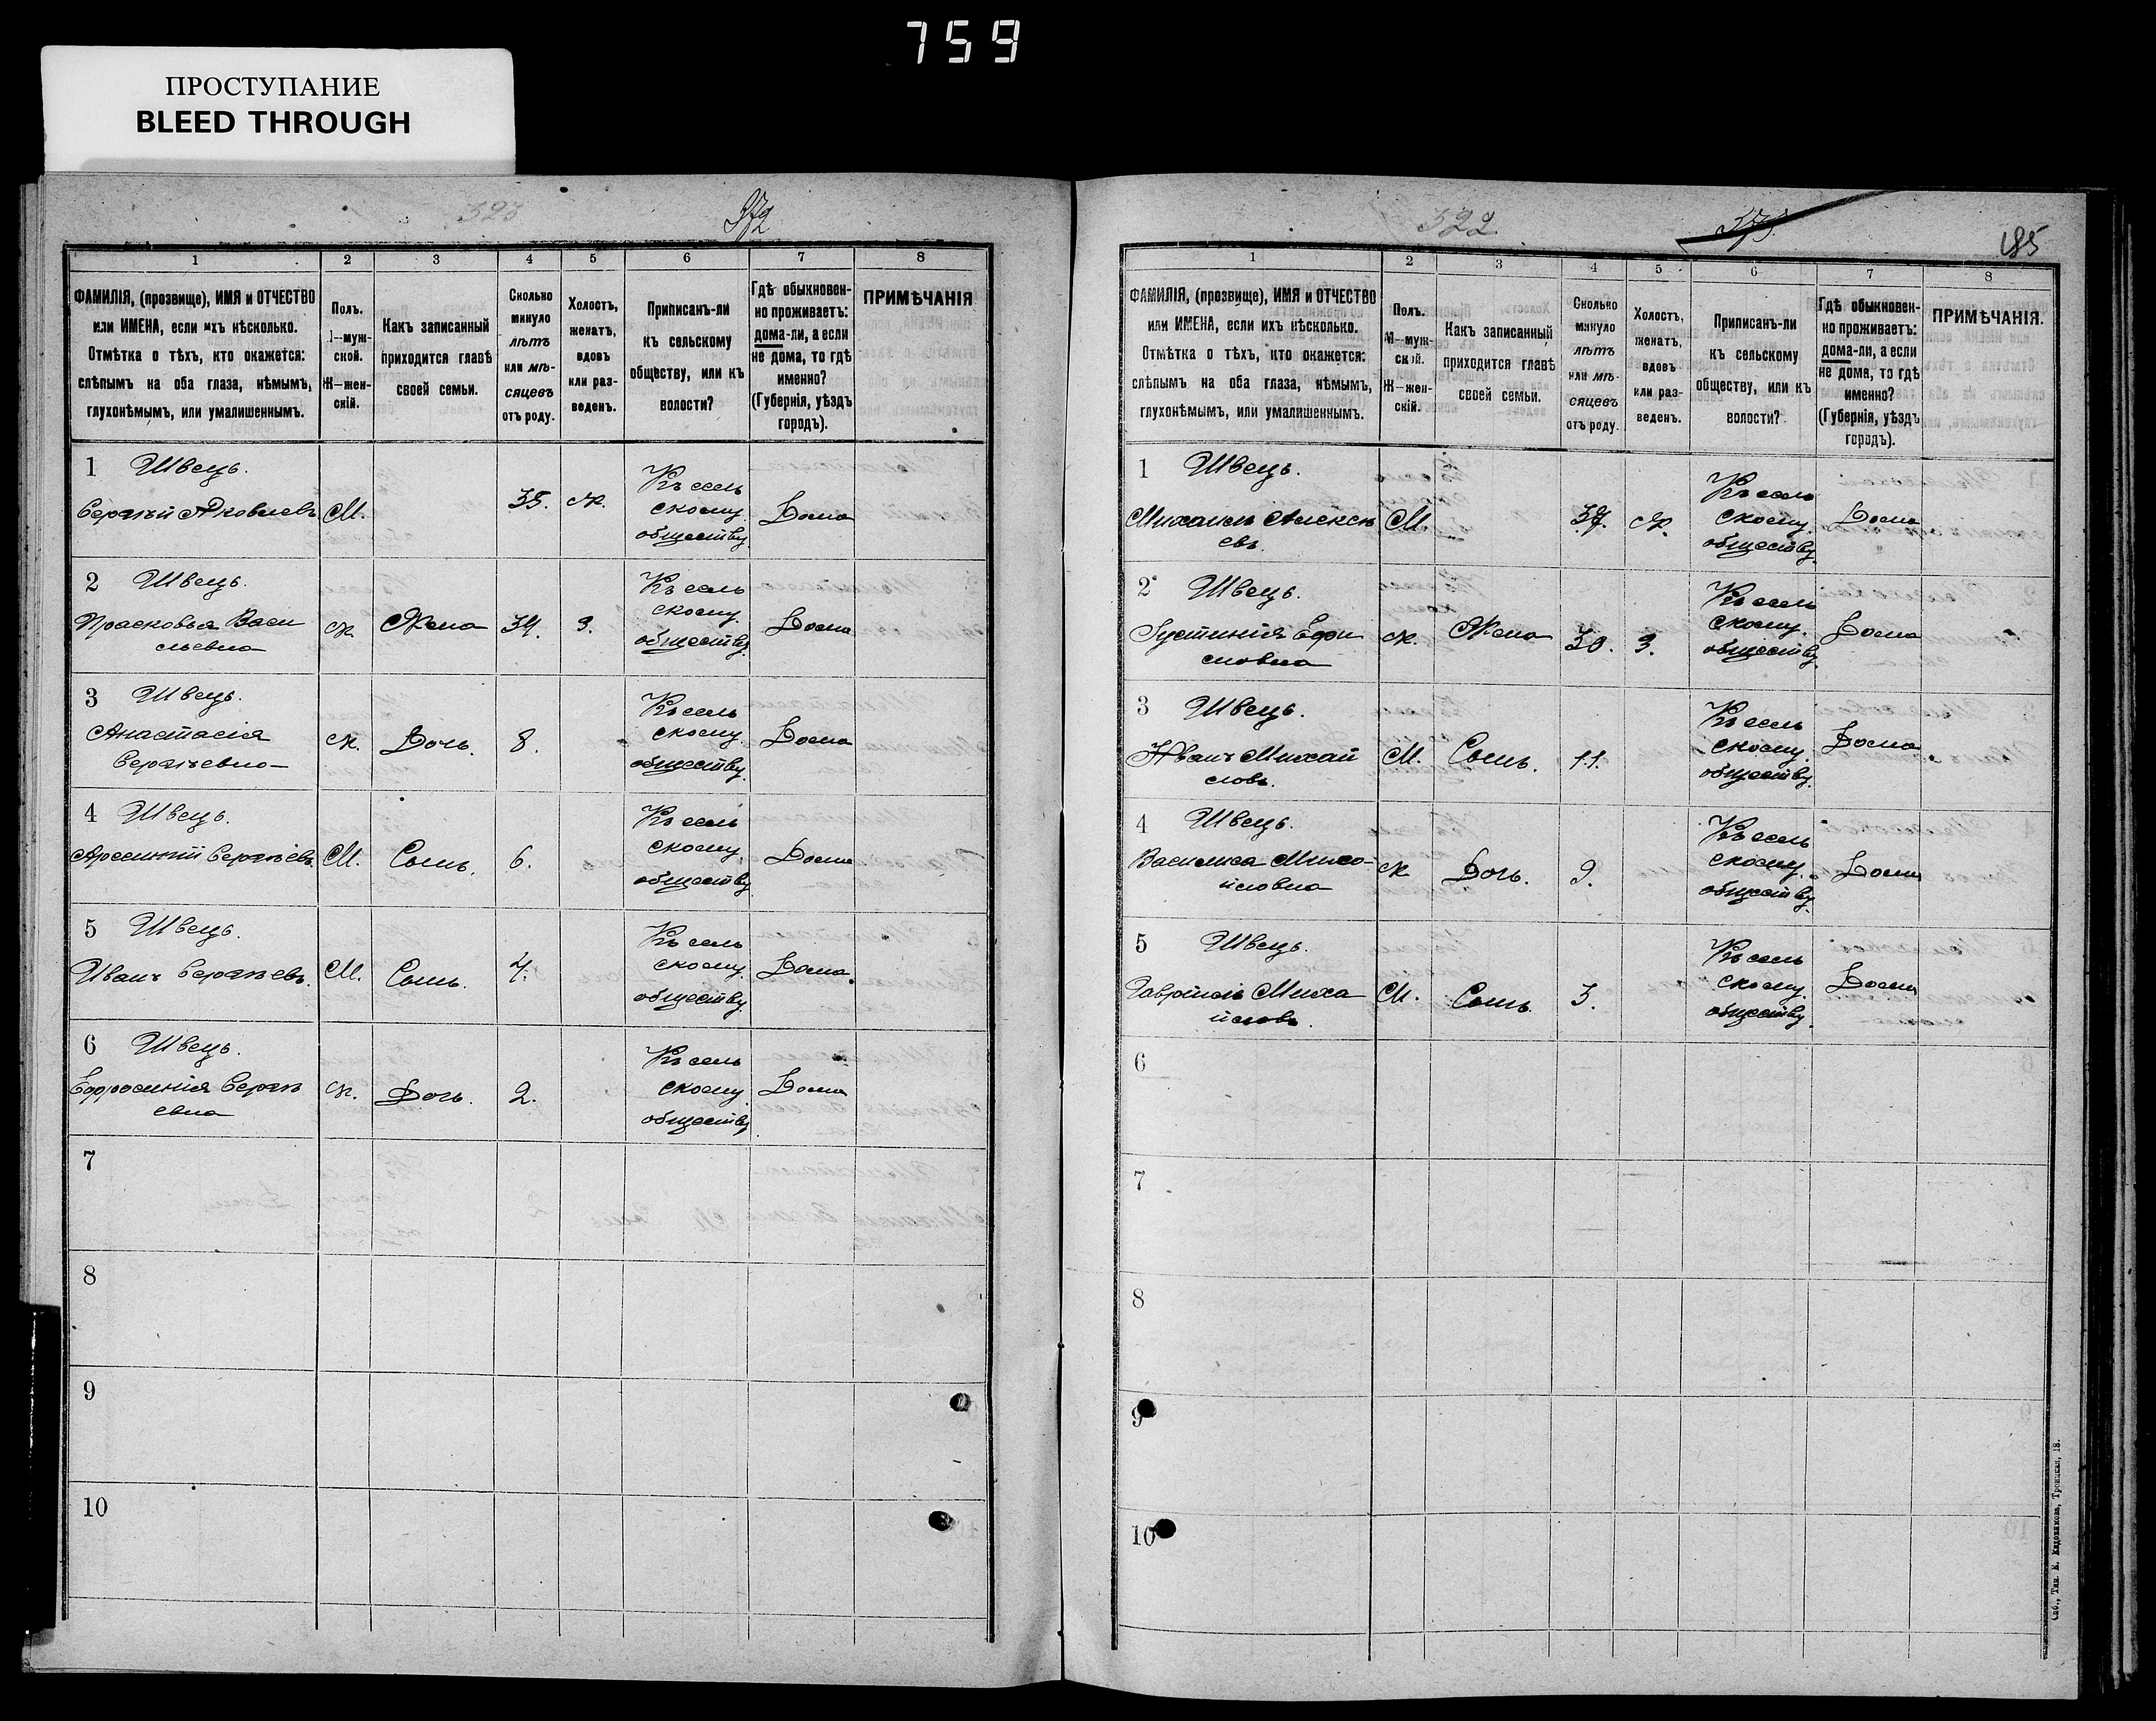 759
ПРОСТУПАНИЕ
BLEED THROUGH
323
372
1 2 3 4 5 6 7 8
ФАМИЛІЯ, (прозвище), ИМЯ и ОТЧЕСТВО
или ИМЕНА, если ихъ нѣсколько.
Отмѣтка о тѣхъ, кто окажется:
слѣпымъ на оба глаза, нѣмымъ,
глухонѣмымъ, или умалишеннымъ.
Полъ.
М—муж-
ской.
Ж—жен-
скій.
Какъ записанный
приходится главѣ
своей семьи.
Сколько
минуло
лѣтъ
или мѣ-
сяцевъ
отъ роду.
Холостъ,
женатъ,
вдовъ
или раз-
веденъ.
Приписанъ-ли
къ сельскому
обществу, или къ
волости?
Гдѣ обыкновен-
но проживаетъ:
дома-ли, а если
не дома, то гдѣ
именно?
(Губернія, уѣздъ
городъ).
ПРИМѢЧАНІЯ
1 Швецъ.
Сергѣй Яковлевъ М. 35. Ж. Къ сель
скому
обществу. Дома
2 Швецъ.
Прасковья Васи
льевна Ж. Жена 34. З. Къ сель
скому.
обществу. Дома
3 Швецъ.
Анастасія
Сергѣевна Ж. Дочь. 8. Къ сель
скому.
обществу. Дома
4 Швецъ.
Арсеній Сергѣевъ. М. Сынъ. 6. Къ сель
скому.
обществу. Дома
5 Швецъ.
Иванъ Сергѣевъ. М. Сынъ. 4. Къ сель
скому.
обществу. Дома.
6 Швецъ.
Ефросинія Сергѣ
евна Ж. Дочь. 2. Къ сель
скому.
обществу. Дома
7
8
9
10
322
373.
185
1 2 3 4 5 6 7 8
ФАМИЛІЯ, (прозвище), ИМЯ и ОТЧЕСТВО
или ИМЕНА, если ихъ нѣсколько.
Отмѣтка о тѣхъ, кто окажется:
слѣпымъ на оба глаза, нѣмымъ,
глухонѣмымъ, или умалишеннымъ.
Полъ.
М—муж-
ской.
Ж—жен-
скій.
Какъ записанный
приходится главѣ
своей семьи.
Сколько
минуло
лѣтъ
или мѣ-
сяцевъ
отъ роду.
Холостъ,
женатъ,
вдовъ
или раз-
веденъ.
Приписанъ-ли
къ сельскому
обществу, или къ
волости?
Гдѣ обыкновен-
но проживаетъ:
дома-ли, а если
не дома, то гдѣ
именно?
(Губернія, уѣздъ
городъ).
ПРИМѢЧАНІЯ.
1 Швецъ.
Михаилъ Алексѣ
евъ. М. 37. Ж. Къ сель
скому.
обществу. Дома
2 Швецъ.
Іустинія Ефи
мовна Ж. Жена 30. З. Къ сель
скому.
обществу Дома
3 Швецъ.
Иванъ Михай
ловъ. М. Сынъ. 11. Къ сель
скому.
обществу. Дома
4 Швецъ.
Василиса Миха-
йловна Ж Дочь. 9. Къ сель
скому.
обществу. Дома
5 Швецъ.
Гавріилъ Миха
йловъ. М. Сынъ. 3. Къ сель
скому.
обществу. Дома
6
7
8
9
10